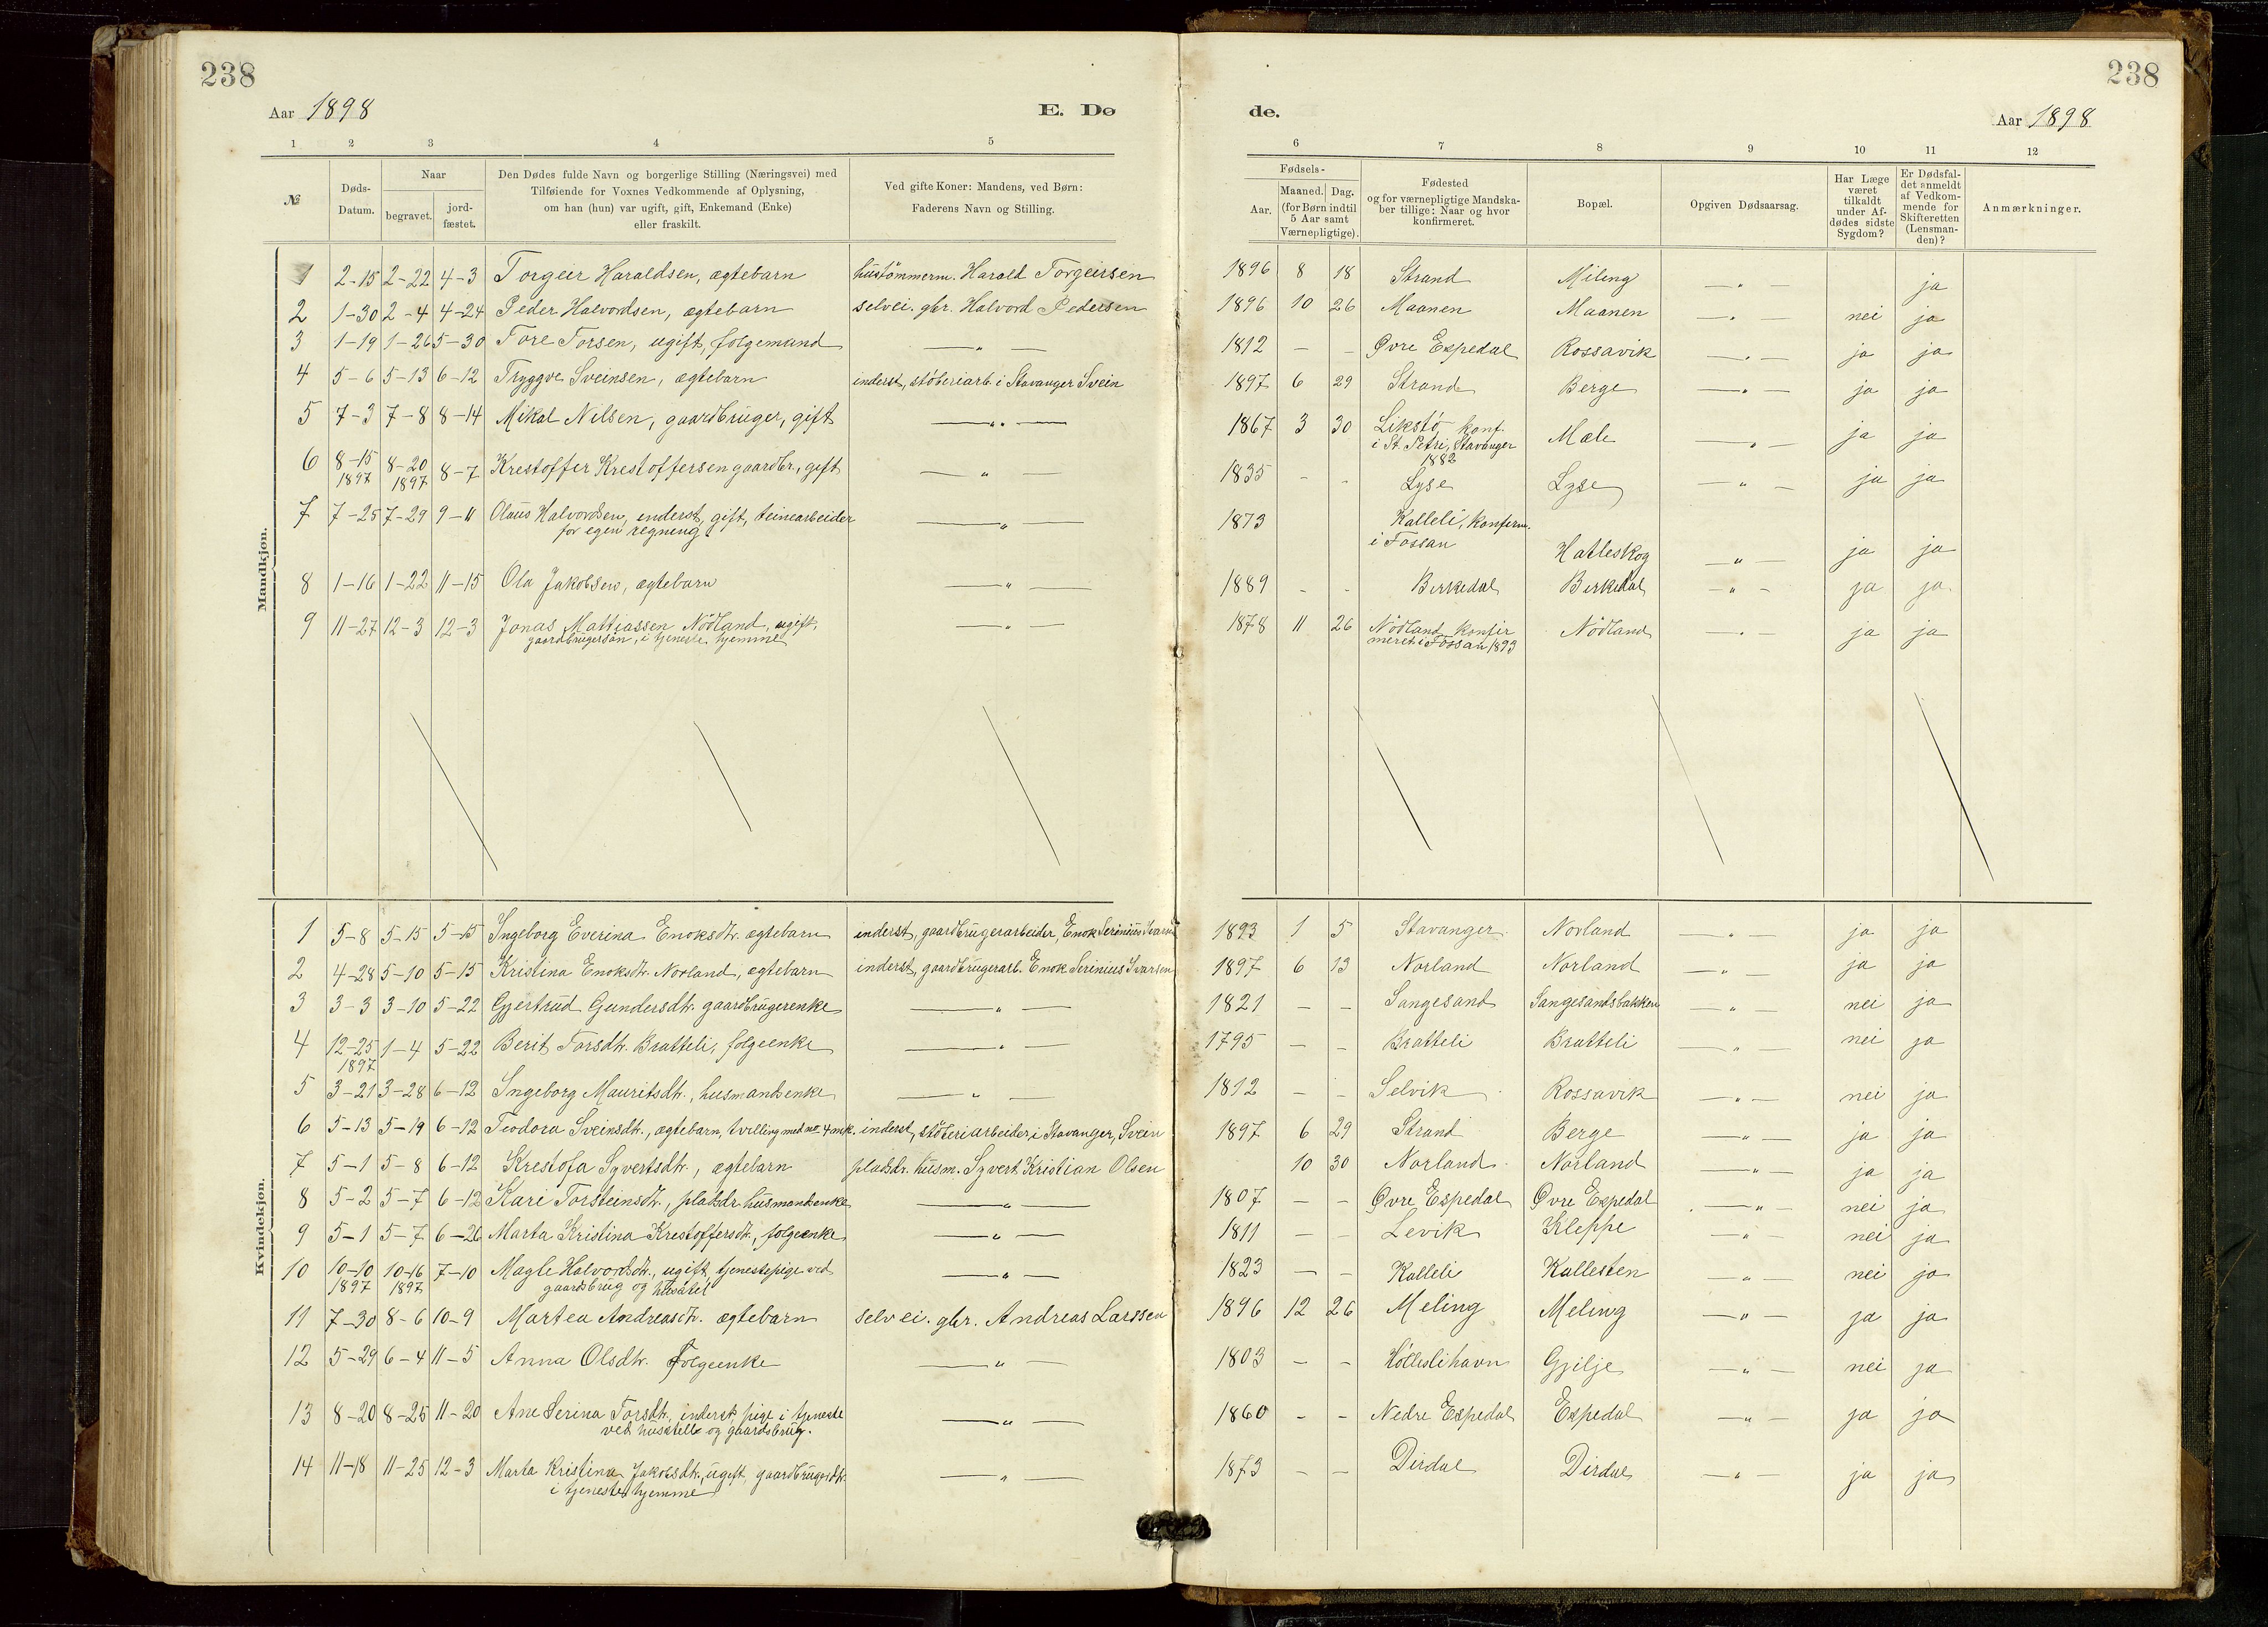 238
238
Aar 1898
E. Dø
de.
Aar 1898
1 2 3 4 5 6 7 8 9 10 11 12
№
Døds-Datum.
Naar
begravet.
jord-fæstet.
Den Dødes fulde Navn og borgerlige Stilling (Næringsvei) med
Tilføiende for Voxnes Vedkommende af Oplysning,
om han (hun) var ugift, gift, Enkemand (Enke)
eller fraskilt.
Ved gifte Koner: Mandens, ved Børn:
Faderens Navn og Stilling.
Fødsels-
Aar.
Maaned. Dag.
(for Børn indtil
5 Aar samt
Værnepligtige).
Fødested
og for værnepligtige Mandska-
ber tillige: Naar og hvor
konfirmeret.
Bopæl.
Opgiven Dødsaarsag.
Har Læge
været
tilkaldt
under Af-
dødes sidste
Sygdom?
Er Dødsfal-
det anmeldt
af Vedkom-
mende for
Skifteretten
(Lensman-
den)?
Anmærkninger.
Mandkjøn.
1 2-15 2-22 4-3 Torgeir Haraldsen, ægtebarn hustömmerm. Harald Torgeirsen 1896 8 18 Strand Meling — " — ja
2 1-30 2-4 4-24 Peder Halvordsen, ægtebarn selvei. gbr. Halvord Pedersen 1896 10 26 Maanen Maanen — " — nei ja
3 1-19 1-26 5-30 Tore Torsen, ugift, folgemand — " — 1812 - - Øvre Espedal Rossavik — " — ja ja
4 5-6 5-13 6-12 Tryggve Sveinsen, ægtebarn inderst, støberiarb. i Stavanger Svein 1897 6 29 Strand Berge — " — ja ja
5 7-3 7-8 8-14 Mikal Nilsen, gaardbruger, gift — " — 1867 3 30 Likstø, konf. Mæle — " — ja ja
i St. Petri, Stavanger
1882
6 8-15 8-20 8-7 Krestoffer Krestoffersen gaardbr., gift — " — 1835 - - Lyse Lyse — " — ja ja
1897 1897
7 7-25 7-29 9-11 Olaus Halvordsen, enderst, gift, teinearbeider — " — 1873 Kalleli, konferm. Hatleskog — " — ja ja
for egen regning i Fossan
8 1-16 1-22 11-15 Ola Jakobsen, ægtebarn — " — 1889 - - Birkedal Birkedal — " — ja ja
9 11-27 12-3 12-3 Jonas Mattiassen Nödland, ugift, — " — 1878 11 26 Nödland, konfir Nödland — " — ja ja
gaardbrugersøn, i tjeneste hjemme meret i Fossan 1893
Kvindekjøn.
1 5-8 5-15 5-15 Ingeborg Everina Enoksdtr. ægtebarn inderst, gaardbrugerarbeider, Enok Serinius Ivarsen 1893 1 5 Stavanger Norland — " — ja ja
2 4-28 5-10 5-15 Kristina Enoksdtr. Norland, ægtebarn inderst, gaardbrugerarb. Enok Serinius Ivarsen 1897 6 13 Norland Norland — " — ja ja
3 3-3 3-10 5-22 Gjertrud Gundersdtr. gaardbrugerenke — " — 1821 - - Sangesand Sangesandsbakken — " — nei ja
4 12-25 1-4 5-22 Berit Torsdtr. Bratteli, folgeenke — " — 1795 - - Bratteli Bratteli — " — nei ja
1897
5 3-21 3-28 6-12 Ingeborg Mauritsdtr., husmandsenke — " — 1812 - - Selvik Rossavik — " — nei ja
6 5-13 5-19 6-12 Teodora Sveinsdtr., ægtebarn, tvilling med no 4 mk. inderst, støberiarbeider i Stavanger, Svein 1897 6 29 Strand Berge — " — ja ja
7 5-1 5-8 6-12 Krestofa Syvertsdtr., ægtebarn pladsdr. husm. Syvert Kristian Olsen 10 30 Norland Norland — " — ja ja
8 5-2 5-7 6-12 Kari Torsteinsdtr., pladsdr husmandsenke — " — 1807 - - Øvre Espedal Øvre Espedal — " — nei ja
9 5-1 5-7 6-26 Marta Kristina Krestoffersdtr., folgeenke — " — 1811 - - Levik Kleppe — " — nei ja
10 10-10 10-16 7-10 Magle Halvordsdtr., ugift, tjenestepige ved — " — 1823 - - Kalleli Kallesten — " — nei ja
1897 1897 gaardsbrug og husstel
11 7-30 8-6 10-9 Martea Andreasdtr. ægtebarn selvei. gbr. Andreas Larssen 1896 12 26 Meling Meling — " — ja ja
12 5-29 6-4 11-5 Anna Olsdtr. folgeenke — " — 1803 - - Hölleslihavn Gjilje — " — nei ja
13 8-20 8-25 11-20 Ane Serina Torsdtr., inderst, pige i tjeneste — " — 1860 - - Nedre Espedal Espedal — " — ja ja
ved husstell og gaardsbrug.
14 11-18 11-25 12-3 Marta Kristina Jakobsdtr., ugift, gaardbrugerdtr. — " — 1873 - - Dirdal Dirdal — " — ja ja
i tjeneste hjemme